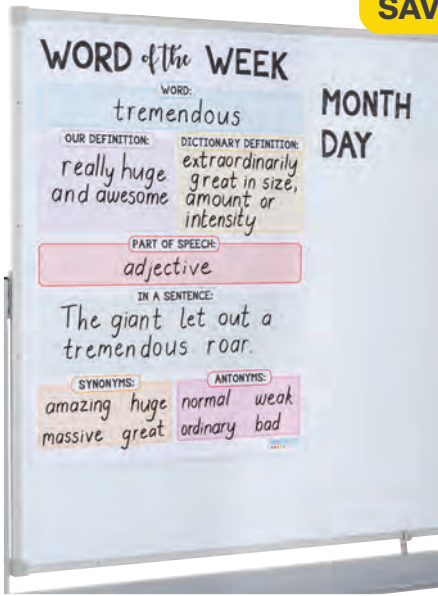 SAV
WORD of the WEEK
WORD:
tremendous
OUR DEFINITION:
really huge
and awesome
DICTIONARY DEFINITION:
extraordinarily
great in size,
amount or
intensity
PART OF SPEECH:
adjective
IN A SENTENCE:
The giant let out a
tremendous roar.
SYNONYMS:
amazing huge
massive great
ANTONYMS:
normal weak
ordinary bad
MONTH
DAY